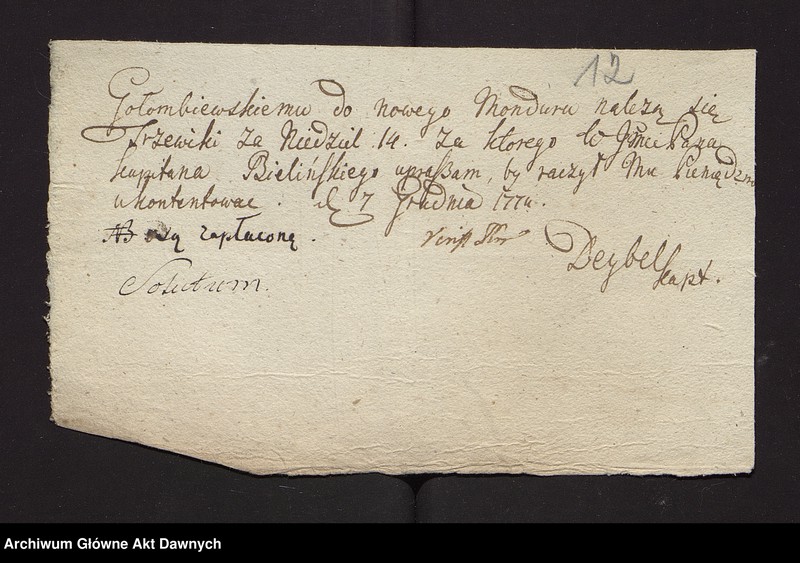 12
Gołombiewskiemu do nowego Monduru należą się
Trzewiki za Niedziel 14. za ktorego W Jmci Pana
Kapitana Bielińskiego upraszam, by raczył Mu Pieniądzmi
ukontentowac. d. 7 Grudnia 1774.
są zapłacone.
Deybel
Kapt.
Solutum.
Archiwum Główne Akt Dawnych